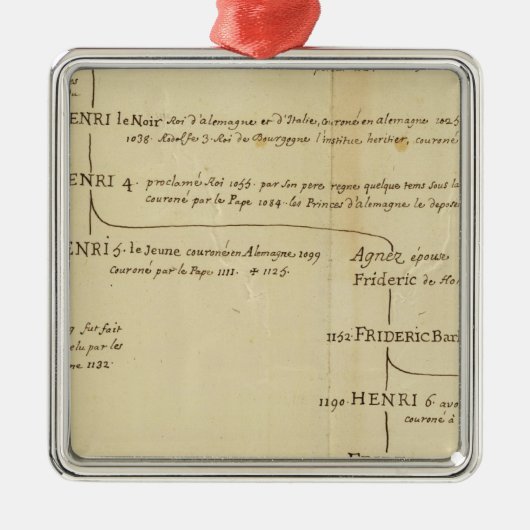 es
HENRI le Noir Roi d'alemagne et d'Italie, couroné en alemagne 1025
1038. Rodolfe 3. Roi de Bourgogne l'institue heritier, couroné
HENRI 4. proclamé Roi 1055. par son pere regne quelque tems sous la
couroné par le Pape 1084. les Princes d'alemagne le depose
HENRI 5. le Jeune couroné en Alemagne 1099
couroné par le Pape 1111. ✝ 1125.
Agnez épouse
Frideric de Ho
fut fait
elu par les
ne 1132.
1152. FRIDERIC Bar
1190. HENRI 6. avo
couroné à